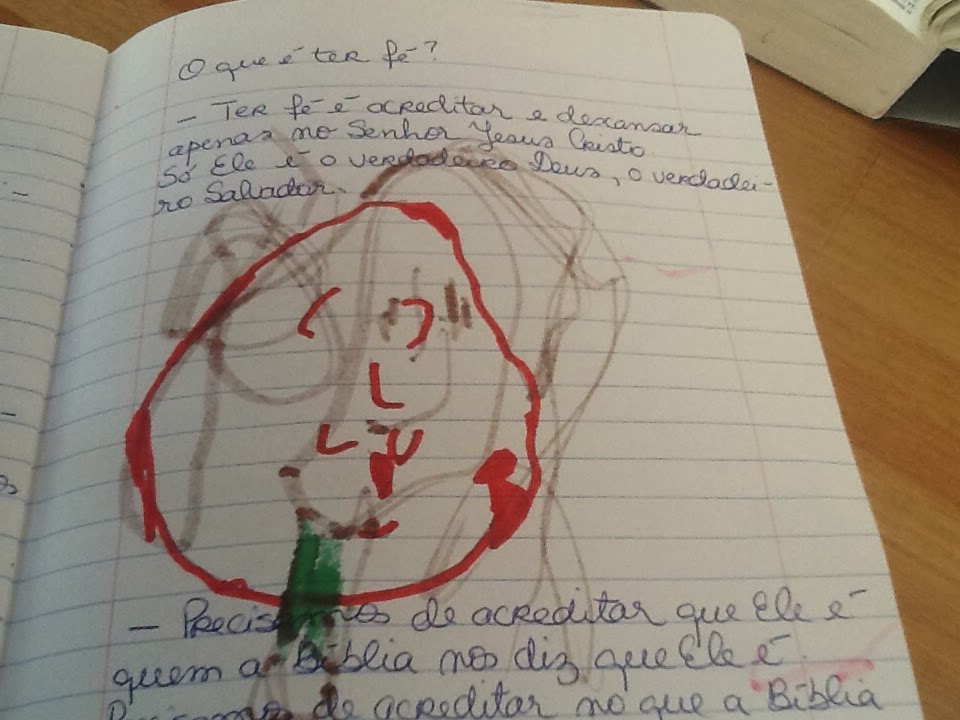 O que é ter fé?
- Ter fé é acreditar e descansar
apenas no Senhor Jesus Cristo
Só Ele é o verdadeiro Deus, o verdadei-
ro Salvador.
- Precisamos de acreditar que Ele é
quem a Bíblia nos diz que Ele é.
Precisamos de acreditar no que a Bíblia